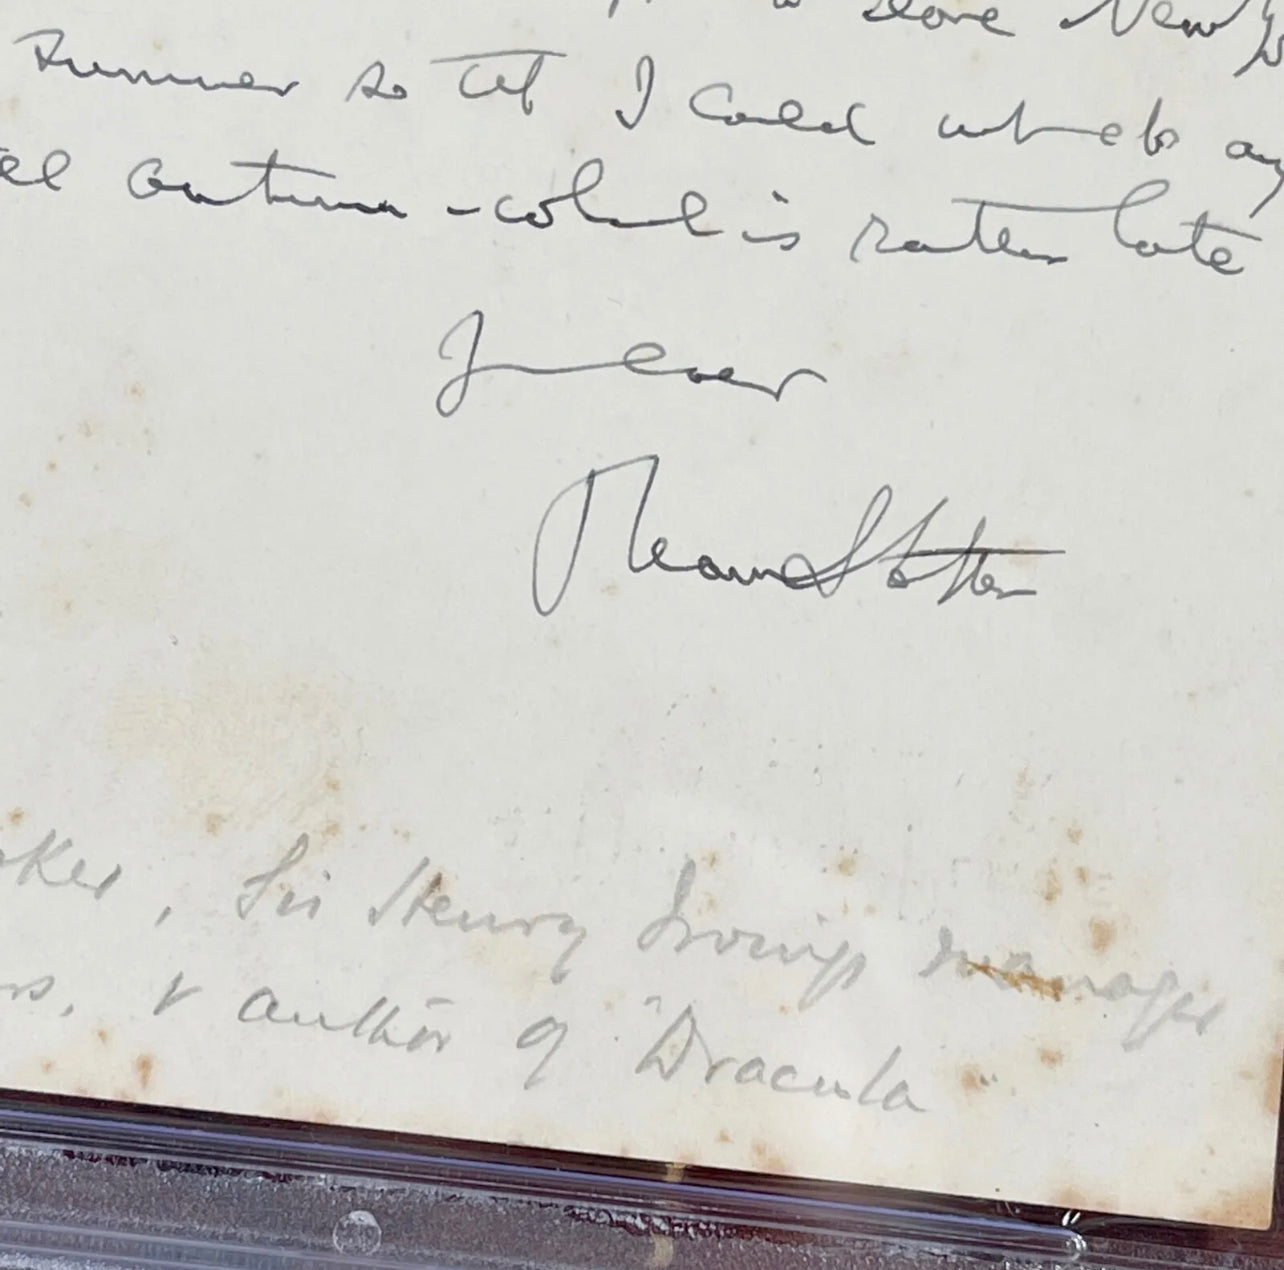 to leave New Y
summer so that I could
autumn - is rather late
Yours ever
Bram Stoker
oker, Sir Henry Irving's manager
rs, & author of "Dracula"